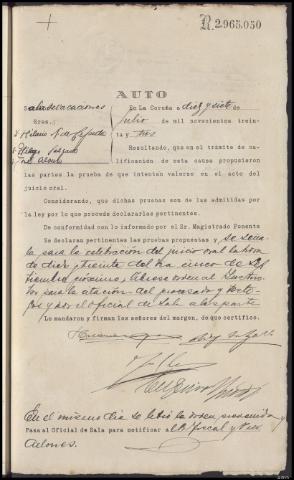 R.2965,050
AUTO
Sala de vacaciones
En La Coruña a diez y siete de
Sres.
Julio de mil novecientos trein-
D. Hilario
ta y tres
D. Diego Salgado
D. José
Resultando, que en el trámite de ca-
lificación de esta causa propusieron
las partes la prueba de que intentan valerse en el acto del
juicio oral.
Considerando, que dichas pruebas son de las admitidas por
la ley por lo que procede declararlas pertinentes.
De conformidad con lo informado por el Sr. Magistrado Ponente
Se declaran pertinentes las pruebas propuestas y se seña-
la para la celebración del juicio oral la hora
de diez y treinta del día cinco de Sep-
tiembre próximo, líbrese orden al
para la citación del procesado y testi-
gos y por el oficial de Sala a las partes
Lo mandaron y firman los señores del margen, de que certifico.
En el mismo día se libró la orden prevenida y
Pasa al Oficial de Sala para notificar al M. Fiscal y Pro